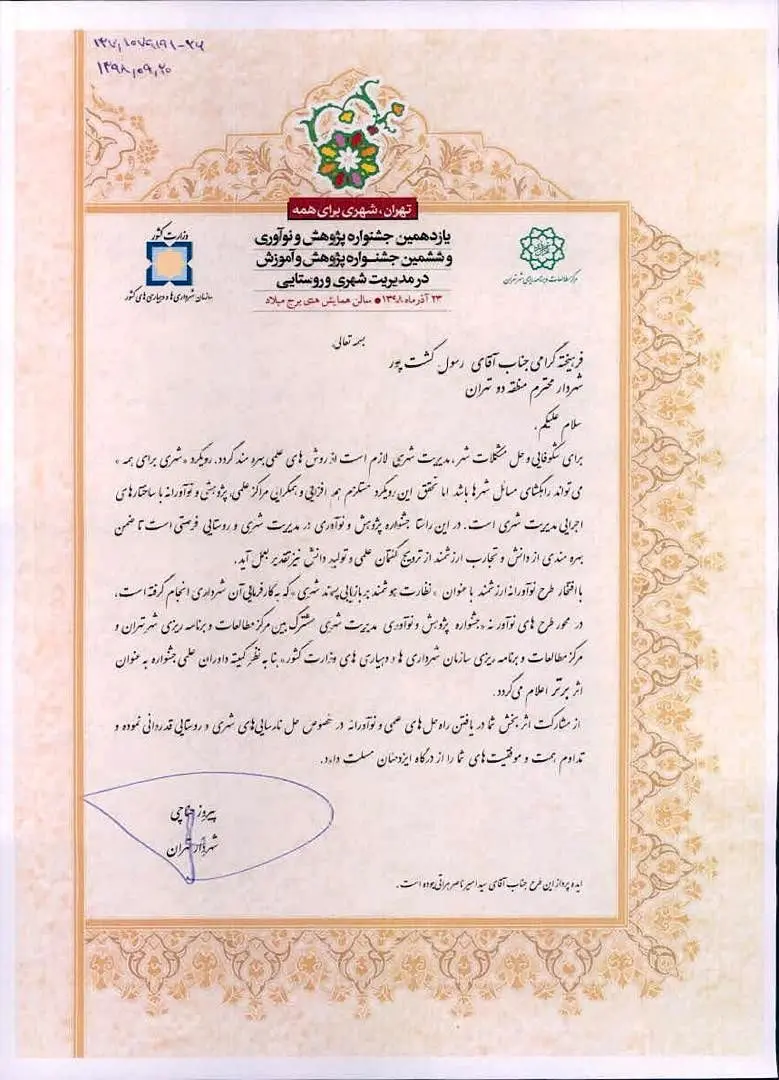 ۱۳۹۸,۰۹,۲۰
تهران، شهری برای همه
یازدهمین جشنواره پژوهش و نوآوری
و ششمین جشنواره پژوهش و آموزش
در مدیریت شهری و روستایی
۲۳ آذر ماه ۱۳۹۸ ● سالن همایش های برج میلاد
وزارت کشور
سازمان شهرداری ها و دهیاری های کشور
مرکز مطالعات و برنامه ریزی شهر تهران
بسمه تعالی
فرهیخته گرامی جناب آقای رسول کشت پور
شهردار محترم منطقه دو تهران
سلام علیکم،
برای شکوفایی و حل مشکلات شهر، مدیریت شهری لازم است از روش های علمی بهره مند گردد. رویکرد «شهری برای همه»
می تواند راهگشای مسائل شهرها باشد اما تحقق این رویکرد مستلزم هم افزایی و همگرایی مراکز علمی، پژوهشی و نوآورانه با ساختارهای
اجرایی مدیریت شهری است. در این راستا جشنواره پژوهش و نوآوری در مدیریت شهری و روستایی فرصتی است تا ضمن
بهره مندی از دانش و تجارب ارزشمند از ترویج گفتمان علمی و تولید دانش نیز تقدیر بعمل آید.
با افتخار طرح نوآورانه ارزشمند با عنوان «نظارت هوشمند بر بازیابی پسماند شهری» که به کارفرمایی آن شهرداری انجام گرفته است،
در محور طرح های نوآورانه «جشنواره پژوهش و نوآوری مدیریت شهری مشترک بین مرکز مطالعات و برنامه ریزی شهر تهران و
مرکز مطالعات و برنامه ریزی سازمان شهرداری ها و دهیاری های وزارت کشور» بنا به نظر کمیته داوران علمی جشنواره به عنوان
اثر برتر اعلام می گردد.
از مشارکت اثربخش شما در یافتن راه حل های علمی و نوآورانه در خصوص حل نارسایی های شهری و روستایی قدردانی نموده و
تداوم همت و موفقیت های شما را از درگاه ایزد منان مسئلت دارد.
پیروز حناچی
شهردار تهران
ایده پرداز این طرح جناب آقای سید امیر ناصر هراتی بوده است.